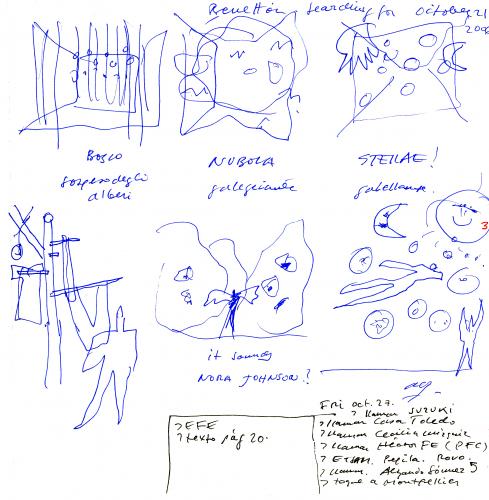 Benetton searching for october 21
200
BOSCO
sospeso degli
alberi
NUBOLA
galleggiante
STELLAE!
3
it sounds
NORA JOHNSON?
> EFE
> texto pág 20.
Fri oct. 27.
> llamar SUZUKI
> llamar Casa Toledo
> llamar Cecilia
> llamar Héctor FE (PFC)
> Pepita. Rovo.
> llamar. Alejandro Gómez 5
> toque a Montpellier